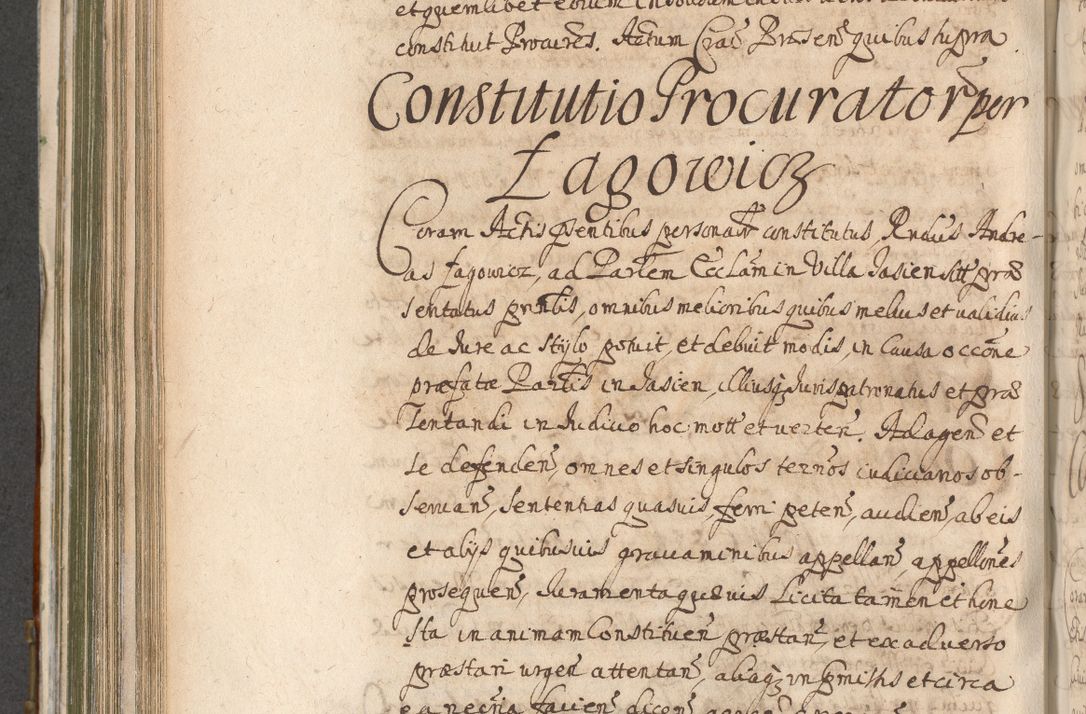 et quemlibet eorum
constitut Procures. Actum Cracᵉ Præsenᵉ quibus supra
Constitutio Procurator̃ per
Łagowicz
Coram Actis pñtibus personałr constitutus Rndus Andre-
as Łagowicz, ad Parlem Ecclam in Villa Jasien sitt præ
sentatus pntlis, omnibus melioribus quibus melius et validius
de Jure ac Stylo potuit, et debuit modis, in Causa occone
præfatæ Parlis in Jasien, illiusq Jurispatronatus et præ
Tentandi in Judicio hoc mott et verten. Ad agenᵈ et
se defendenᵈ, omnes et singulos termos iudiciarios ob-
servanᵈ, Sententias quasvis, ferri petenᵈ, audienᵈ, ab eis
et alijs quibusvis gravaminibus appellanᵈ, appellones
prosequenᵈ, Juramenta quævis Licita tamen et hone
sta in animam Constituen præstanᵈ, et ex adverso
præstari urgenᵈ attentanᵈ, aliaq in præmissis et circa
ea necria faciend dicenᵈ